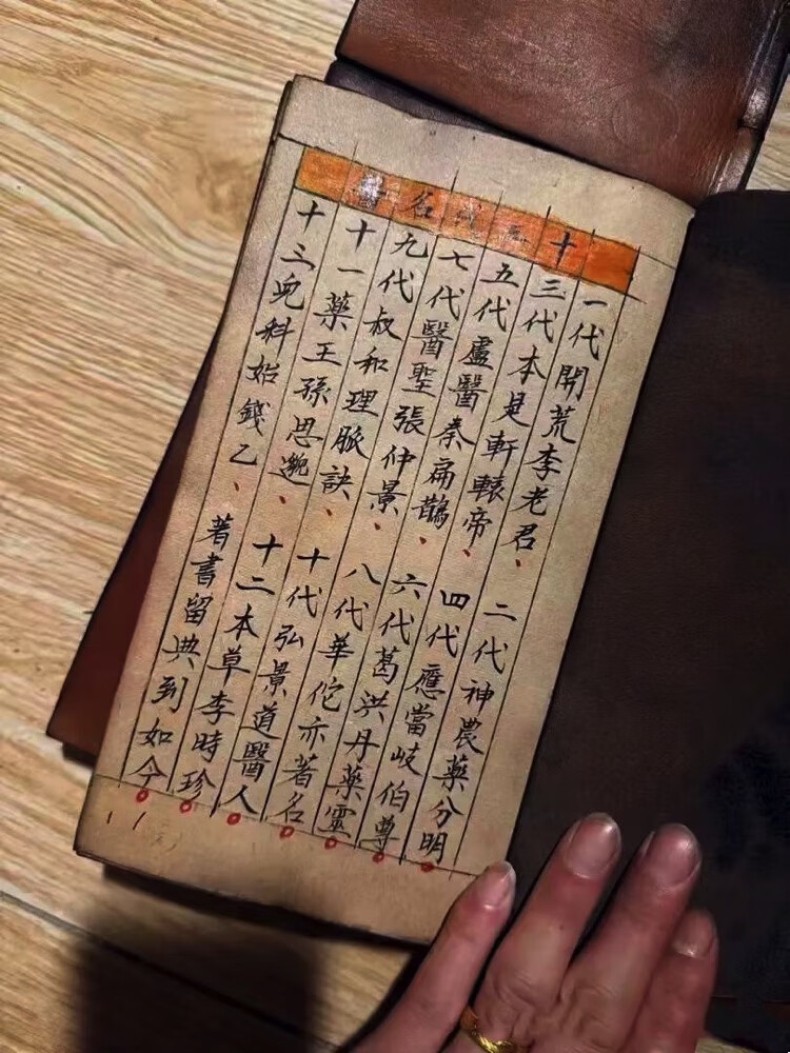 十三代名醫
一代開荒李老君、二代神農藥分明
三代本是軒轅帝、四代應當岐伯尊
五代盧醫秦扁鵲、六代葛洪丹藥靈
七代醫聖張仲景、八代華佗亦著名
九代叔和理脈訣、十代弘景道醫人
十一藥王孫思邈、十二本草李時珍
十三兒科始錢乙、著書留典到如今